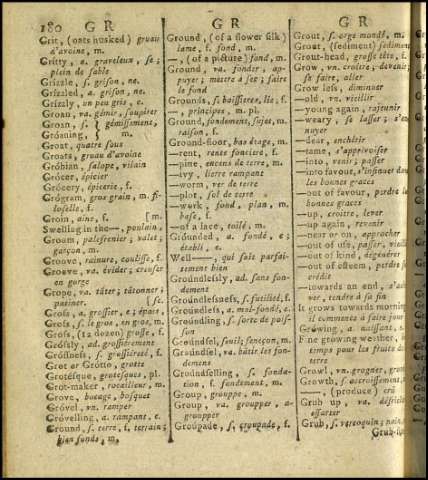 180 G R
G R
G R
Grit, (oats husked) gruau
d'avoine, m.
Gritty, a. graveleux, se;
plein de sable
Grizzle, s. grison, ne.
Grizzled, a. grison, ne.
Grizzly, un peu gris, e.
Groan, va. gémir, soupirer
Groan, s. } gémissement,
Gróaning, } m.
Groat, quatre sous
Groats, gruau d'avoine
Gróbian, salope, vilain
Grócer, épicier
Grócery, épicerie, f.
Grógram, gros grain, m. fi-
loselle, f.
Groin, aine, f. [m.
Swelling in the—, poulain,
Groom, palefrenier, valet;
garçon, m.
Groove, rainure, coulisse, f.
Groove, va. évider; creuser
en gorge
Grope, va. tâter; tâtonner;
patiner. [se.
Gross, a. grossier, e; épais,
Gross, s. le gros, en gros, m.
Gross, (12 dozen) grosse, f.
Gróssly, ad. grossièrement
Gróssness, s. grossiéreté, f.
Grot or Grótto, grotte
Grotésque, grotesque, pl.
Grot-maker, rocailleur, m.
Grove, bocage, bosquet
Gróvel, vn. ramper
Gróvelling, a. rampant, e.
Ground, s. terre, f. terrein;
bien fonds, m.
Ground, (of a flower silk)
lame, f. fond, m.
—, (of a picture) fond, m.
Ground, va. fonder, ap-
puyer; mettre à sec; faire
le fond
Grounds, s. baissieres, lie, f.
—, principes, m. pl.
Ground, fondement, sujet, m.
raison, f.
Ground-floor, bas étage, m.
—rent, rente fonciere, f.
—pine, encens de terre, m.
—ivy, lierre rampant
—worm, ver de terre
—plot, sol de terre
—work, fond, plan, m.
base, f.
—of a lace, toilé, m.
Gróunded, a. fondé, e;
établi, e.
Well——, qui sait parfai-
tement bien
Gróundlessly, ad. sans fon-
dement
Gróundlessness, s. futilité, f.
Gróundless, a. mal-fondé, e.
Gróundling, s. sorte de pois-
son
Gróundsel, seuil; seneçon, m.
Gróundsel, va. bâtir les fon-
demens
Gróundselling, s. fonda-
tion, f. fondement, m.
Group, grouppe, m.
Group, va. groupper, a-
groupper
Gróupade, s. croupade, f.
Grout, s. orge mondé, m.
Grout, (sediment) sédiment
Grout-head, grosse tête, f.
Grow, vn. croître; devenir;
se faire, aller
Grow less, diminuer
—old, vn. vieillir
—young again, rajeunir
—weary, se lasser; s'en-
nuyer
—dear, enchérir
—tame, s'apprivoiser
—into, venir; passer
—into favour, s'insinuer dans
les bonnes graces
—out of favour, perdre les
bonnes graces
—up, croître, lever
—up again, revenir
—near or on, approcher
—out of use, passer, vieillir
—out of kind, dégénérer
—out of esteem, perdre son
crédit
—towards an end,
tendre à sa fin
It grows towards morning,
il commence à faire jour
Grówing, a. naissant,
Fine growing weather,
temps pour les fruits de
terre
Growl, vn. grogner,
Growth, s. accroissement,
—, (produce)
Grub up, va. défricher,
essarter
Grub, s. vercoquin; nain,
Grub-